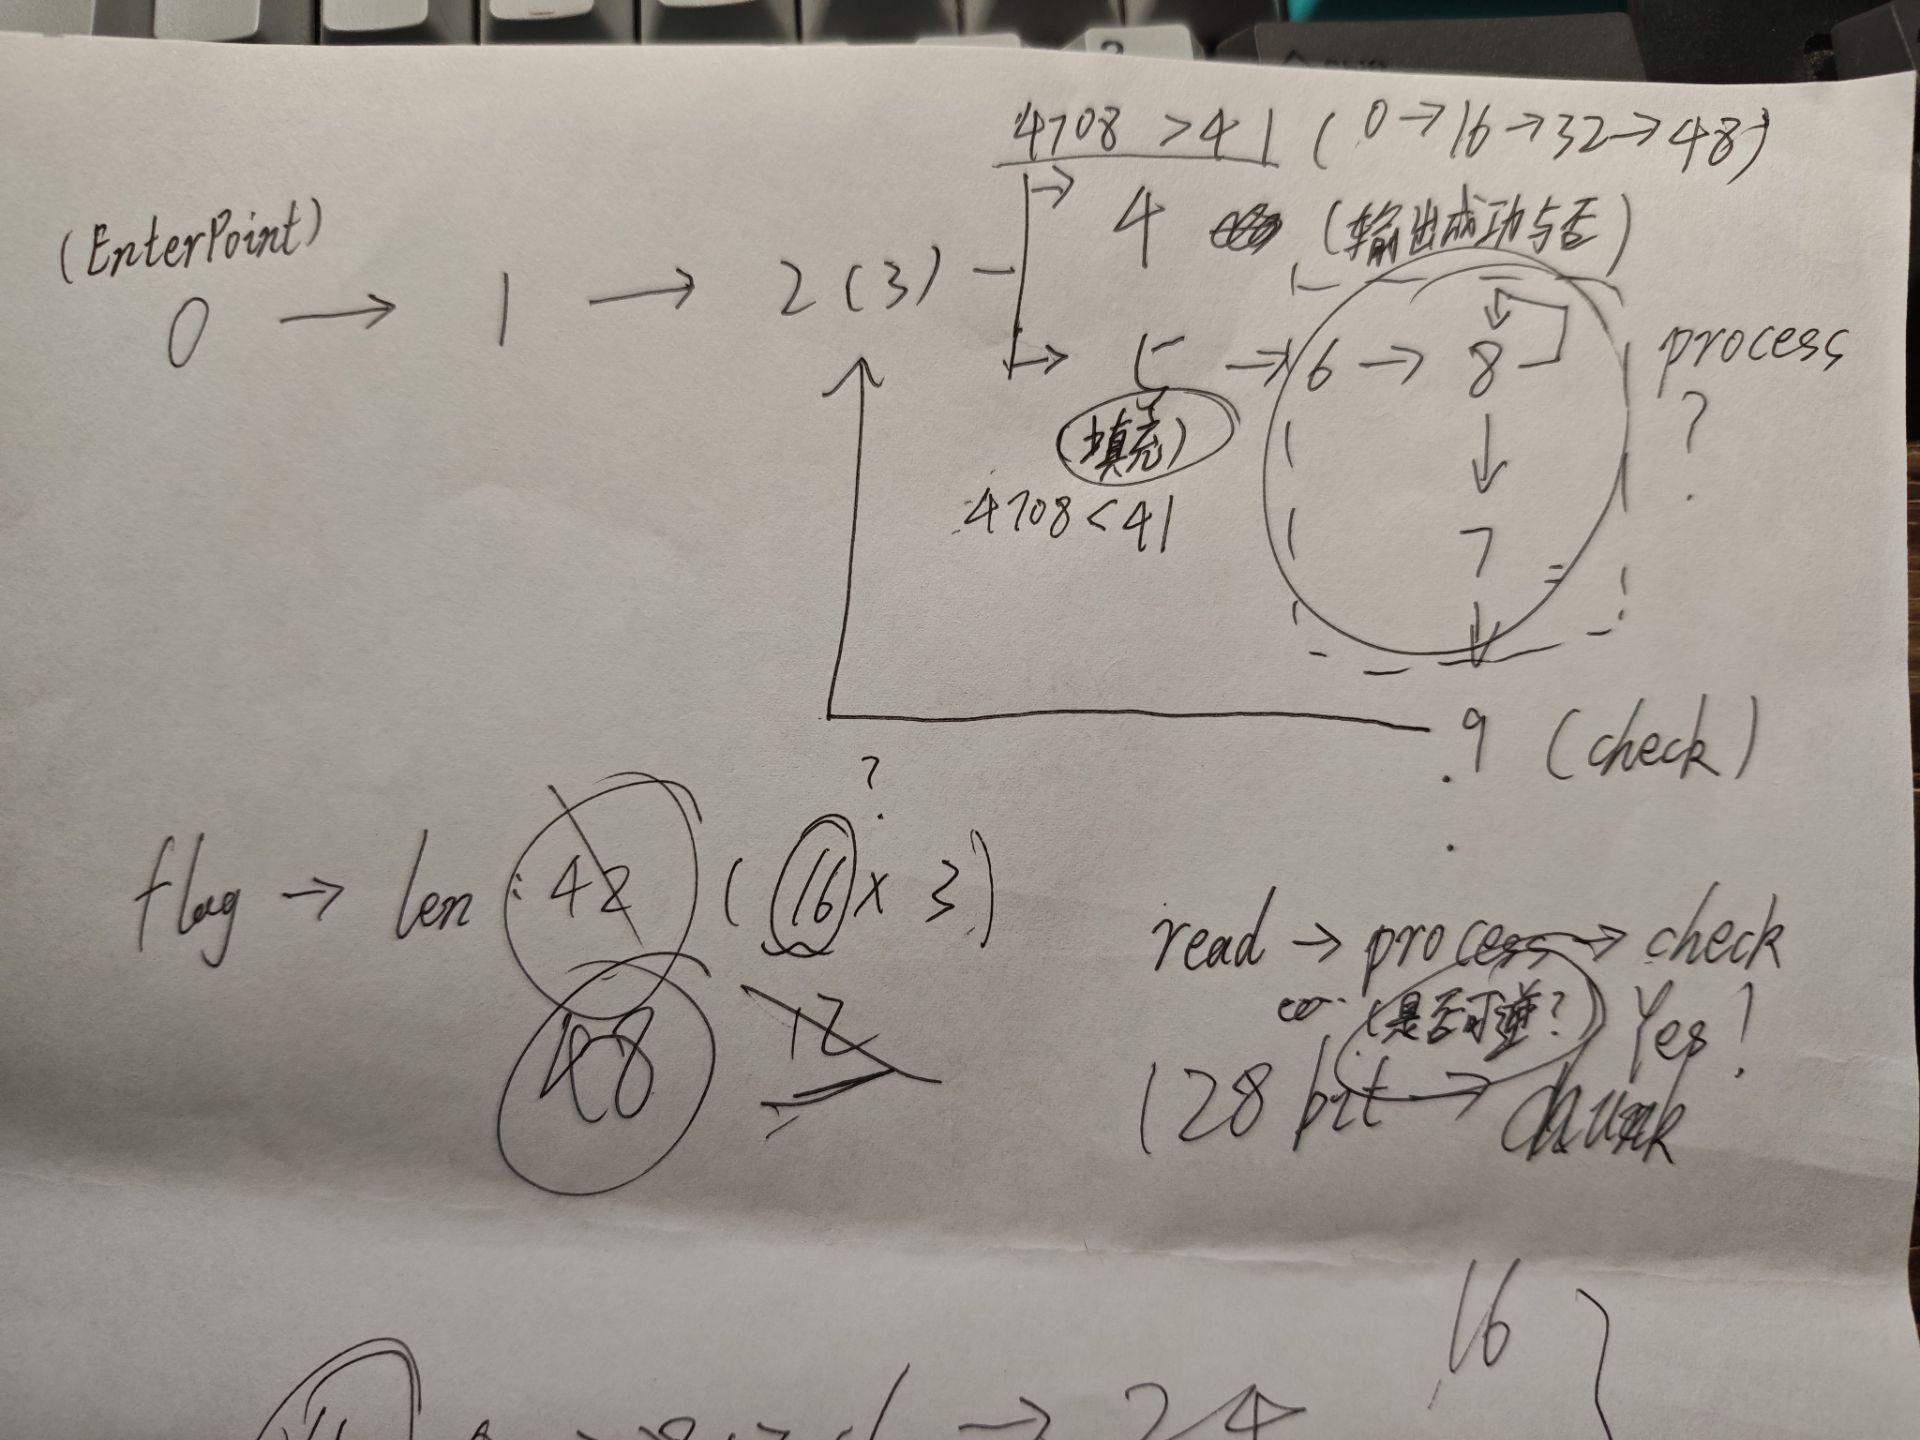 4708 > 41 ( 0 → 16 → 32 → 48 )
(EnterPoint)
→ 4 (输出成功与否)
0 → 1 → 2 (3)
→ 5 → 6 → 8 process
?
(填充)
4708 < 41
7
9 (check)
?
flag → len : 42 ( 16 x 3 )
read → process → check
48 12
(是否可逆?) Yes!
128 bit → chunk
16
→ 24